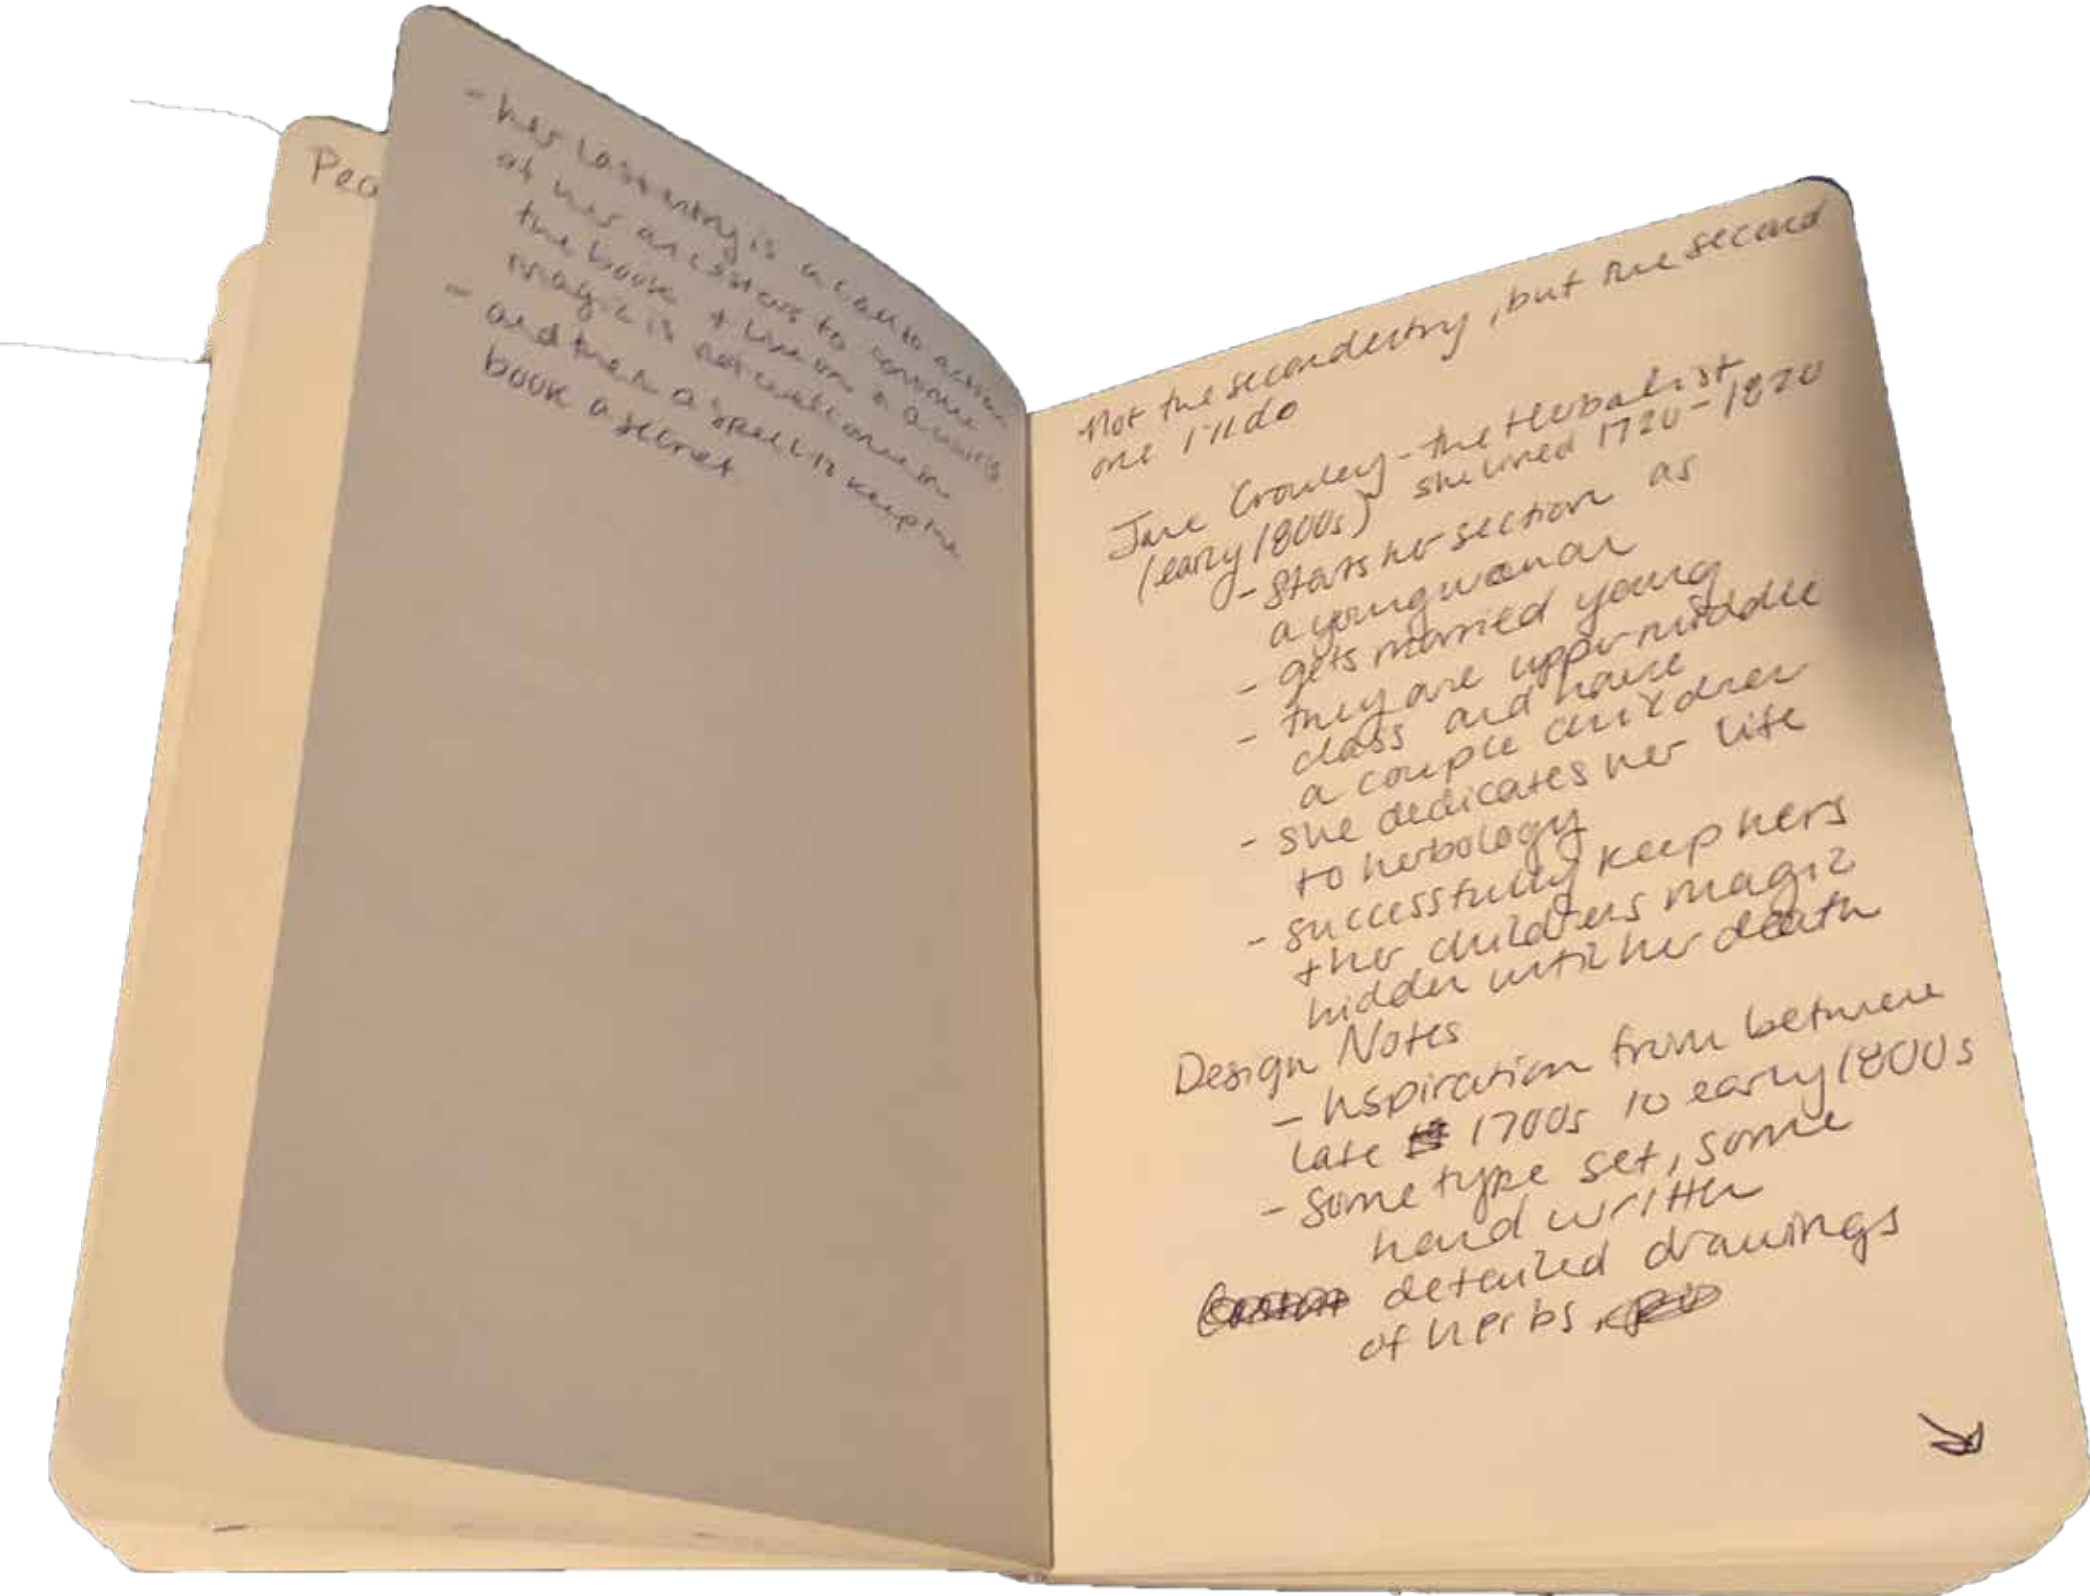 Pea
- her last entry is a call to action
of her ancestors to continue
the book + live on in a world
magic is not welcome in
- and then a spell to keep the
book a secret
Not the second entry, but the second
one I'll do
Jane Crowley - the Herbalist
(early 1800s) she lived 1720-1820
- Starts her section as
a young woman
- gets married young
- they are upper middle
class and have
a couple children
- she dedicates her life
to herbology
- successfully keep hers
+ her childrens magic
hidden until her death
Design Notes
- Inspiration from between
late 1700s to early 1800s
- Some type set, some
hand written
detailed drawings
of herbs.